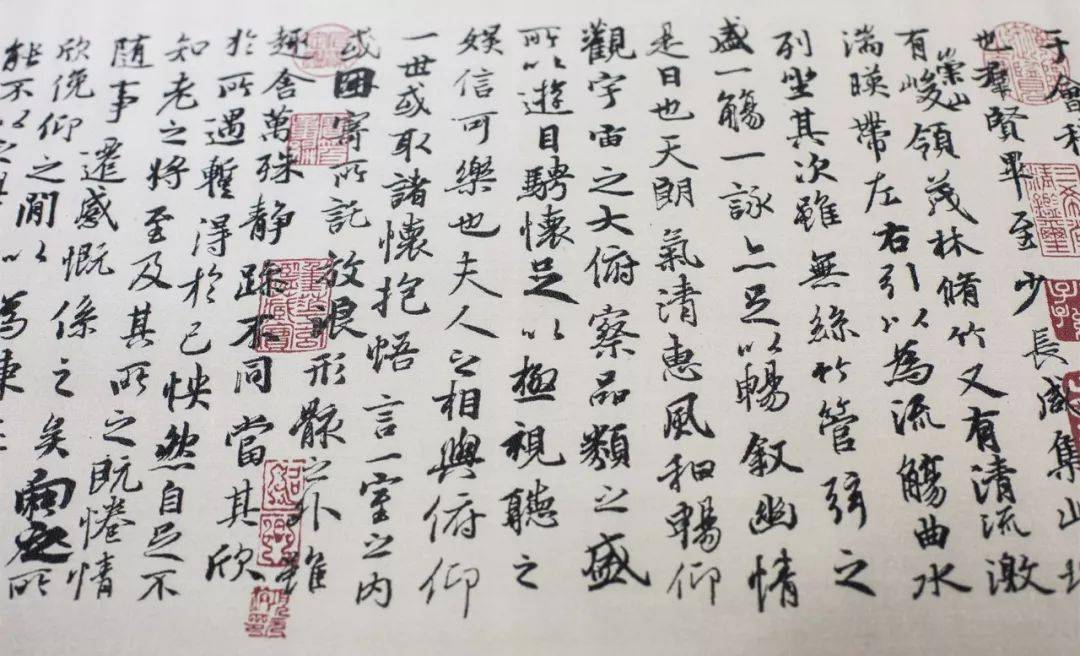 于會
也羣賢畢至少長咸集此
有崇山峻領茂林脩竹又有清流激
湍暎帶左右引以為流觴曲水
列坐其次雖無絲竹管弦之
盛一觴一詠亦足以暢敘幽情
是日也天朗氣清惠風和暢仰
觀宇宙之大俯察品類之盛
所以遊目騁懷足以極視聽之
娛信可樂也夫人之相與俯仰
一世或取諸懷抱悟言一室之內
或因寄所託放浪形骸之外雖
趣舍萬殊靜躁不同當其欣
於所遇暫得於己怏然自足不
知老之將至及其所之既惓情
隨事遷感慨係之矣向之所
欣俛仰之閒以為陳
能不以之